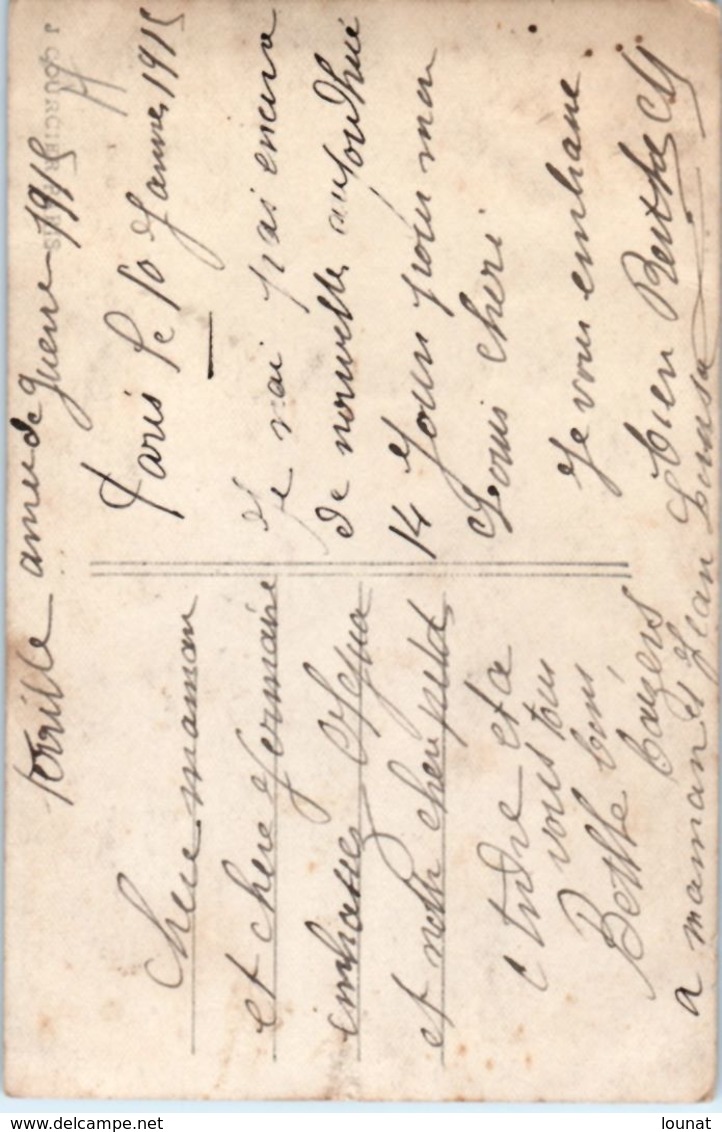 terrible annee de guerre 1915
Paris le 10 Janvier 1915
Je n'ai pas encore
de nouvelle aujourdhui
14 Jours pour mon
Louis cheri
Je vous embrasse
bien Berthe
Chere maman
et chere Germaine
embrasses
et notre cher petit
Andre et a
vous tous
Berthe bons
baizers
a maman et Jean Louise
J. COURCIER PARIS
delcampe.net
lounat